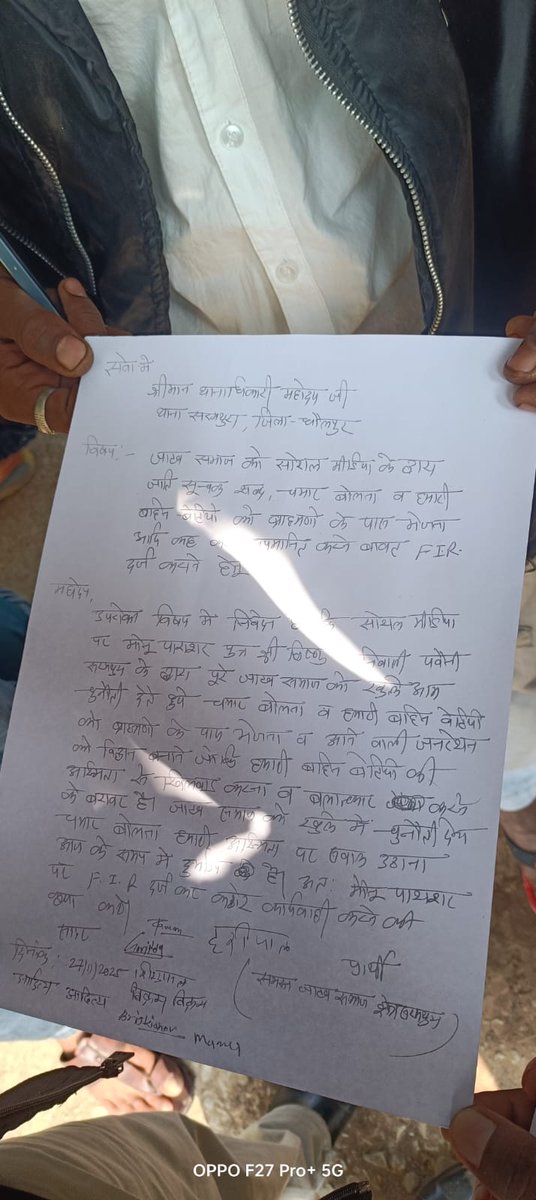 सेवा में
श्रीमान थानाधिकारी महोदय जी
थाना सरमथुरा, जिला-धौलपुर
विषय:- जाटव समाज को सोशल मीडिया के द्वारा
जाति सूचक शब्द, चमार बोलना व हमारी
बहिन बेटियो को ब्राह्मणो के पास भेजना
आदि कह कर अपमानित करने बावत F.I.R.
दर्ज कराने हेतु
महोदय,
उपरोक्त विषय में निवेदन है कि सोशल मीडिया
पर मोनू पाराशर पुत्र श्री विष्णु निवासी
सरमथुरा के द्वारा पूरे जाटव समाज को खुले आम
चुनौती देते हुये चमार बोलना व हमारी बहिन बेटियो
को ब्राह्मणो के पास भेजना व आने वाली जनरेशन
को विद्वान बनाने जोकि हमारी बहिन बेटियो की
अस्मिता से खिलवाड करना व बलात्कार करने
के बराबर है। जाटव समाज को खुले में चुनौती देना
चमार बोलना हमारी अस्मिता पर सवाल उठाना
आज के समय में है। अतः मोनू पाराशर
पर F.I.R दर्ज कर कठोर कार्यवाही करने की
कृपा करें।
हरीपाल
प्रार्थी
दिनांक: 27/11/2025
(समस्त जाटव समाज क्षेत्र सरमथुरा)
आदित्य आदित्य विक्रम विक्रम
Brijkishor Manoj
OPPO F27 Pro+ 5G